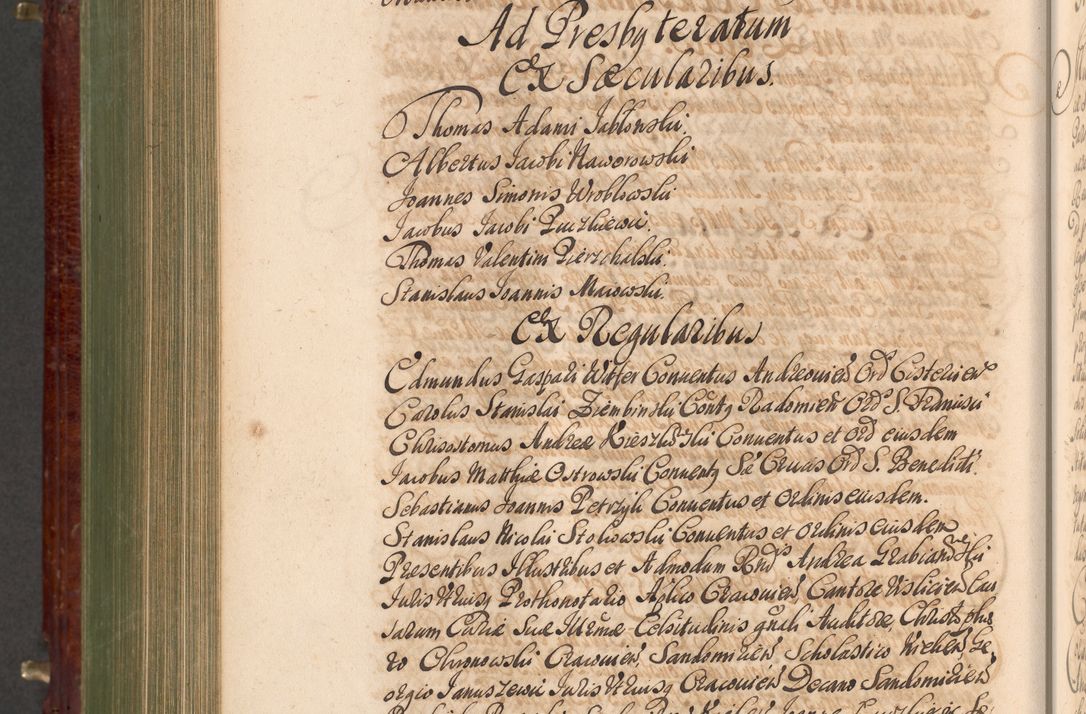 Ad Presbyteratum
Ex Sæcularibus.
Thomas Adami Jabłonski.
Albertus Jacobi Naworowski
Joannes Simonis Wroblowski
Jacobus Jacobi
Thomas Valentini Pierzchalski.
Stanislaus Joannis
Ex Regularibus
Edmundus Gaspari Witter Conventus Andreovien Ord Cistercien
Carolus Stanislai Ziembinski Conty Radomien Ord S. Francisci
Chrisostomus Andreæ Conventus et Ord eiusdem
Jacobus Matthiæ Ostrowski Conventy Stæ Crucis Ord S. Benedicti.
Sebastianus Joannis Petrzyk Conventus et Ordinis eiusdem.
Stanislaus Nicolai Conventus et Ordinis eiusdem
Præsentibus Illustribus et Admodum Rndis Andrea
Juris Utriusq Prothonotario Aplico Cracovien Cantore Uslicien Cau
sarum Curiæ Suæ Celsitudinis gnali Auditore, Christopho
ro Chronowski Cracovien, Sandomirien Scholastico Kielcen, Ge,
orgio Januszewic Juris Utriusq Cracovien Decano Sandomirien